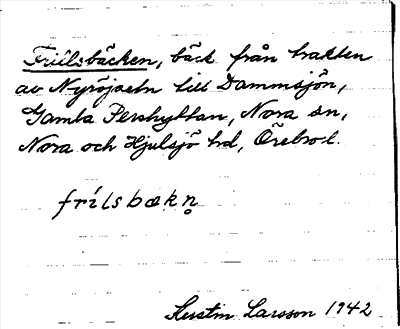 Friilsbäcken, bäck från trakten
av Nyröjaetn till Dammsjön,
Gamla Pershyttan, Nora sn,
Nora och Hjulsjö hd, Örebro l.
frílsbækn̥
Kerstin Larsson 1942